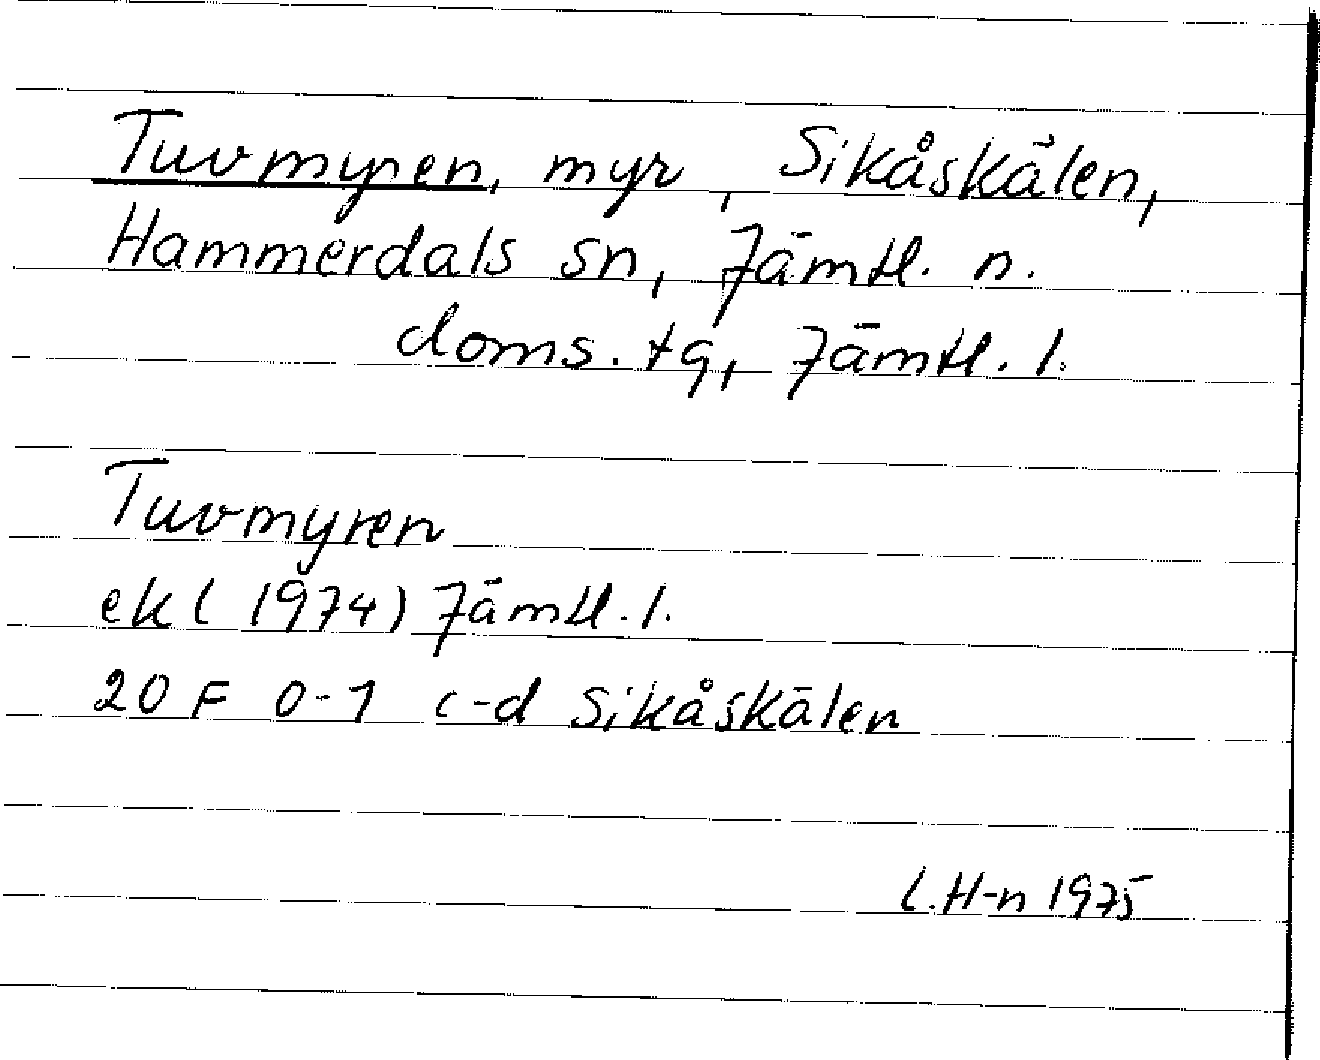 Tuvmyren, myr, Sikåskälen,
Hammerdals sn, Jämtl. n.
doms. tg, Jämtl. l.
Tuvmyren
ek (1974) Jämtl. l.
20 F 0-1 c-d Sikåskälen
L. H-n 1975